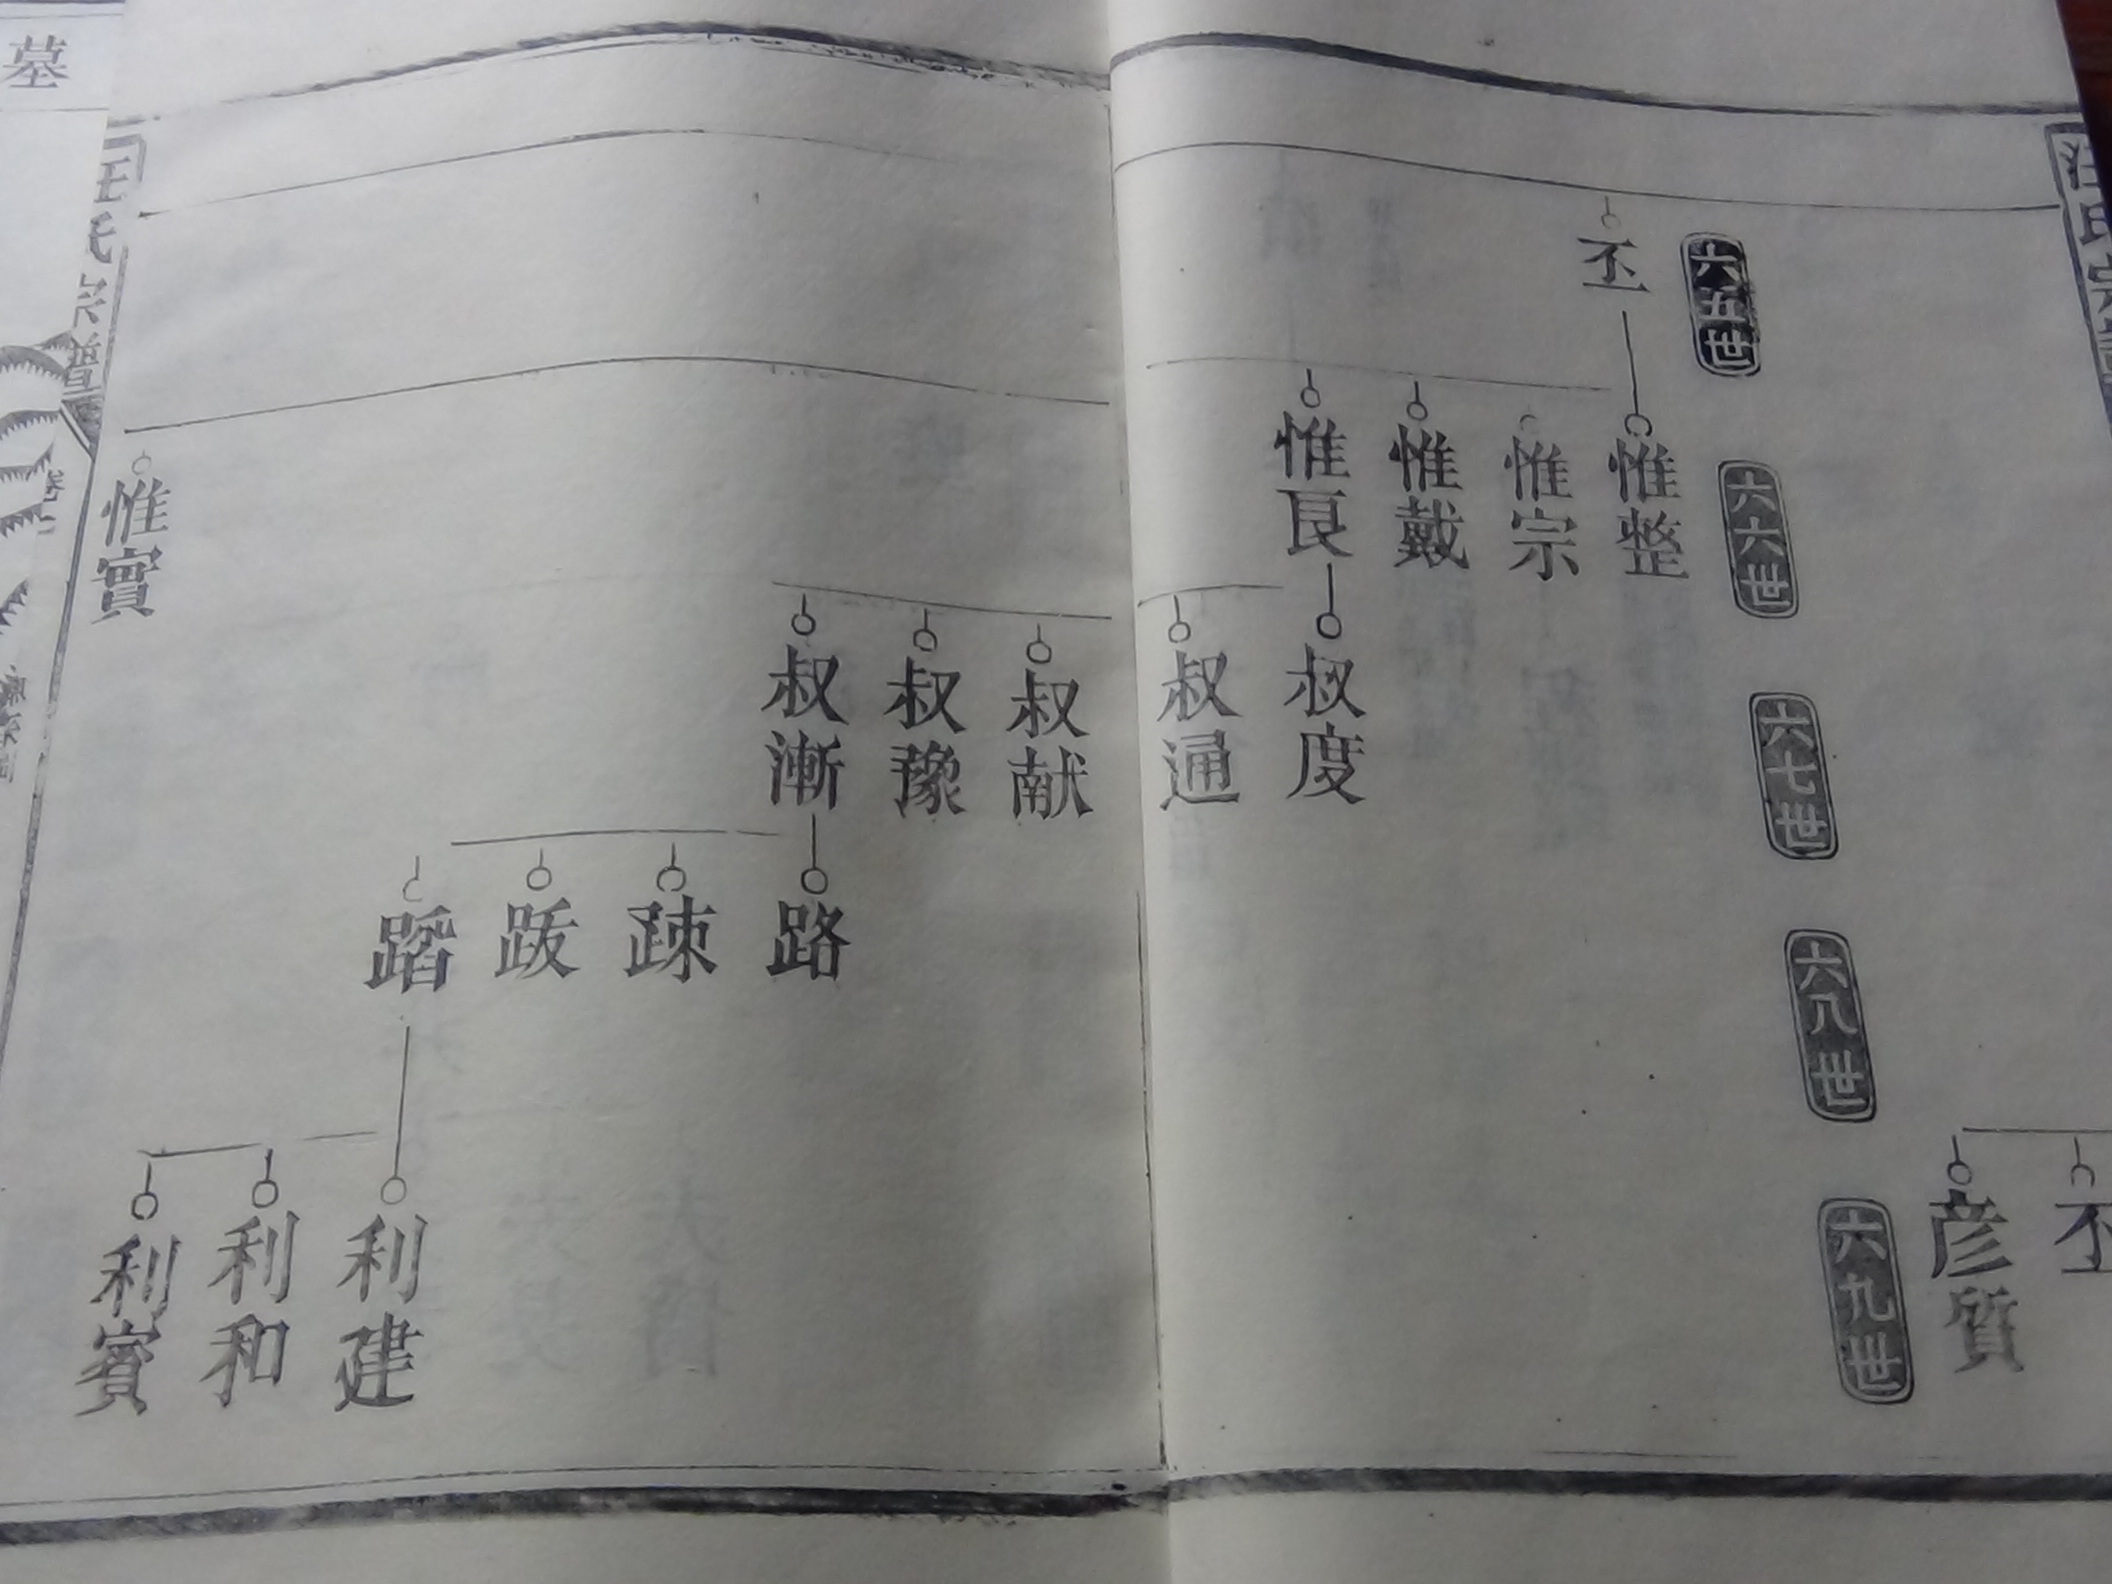 汪氏宗譜
丕
彦質
六五世
六六世
六七世
六八世
六九世
丕
惟整
惟宗
惟戴
惟艮
叔度
叔通
叔献
叔豫
叔漸
路
疎
跋
蹈
利建
利和
利賓
惟實
汪氏宗譜
墓